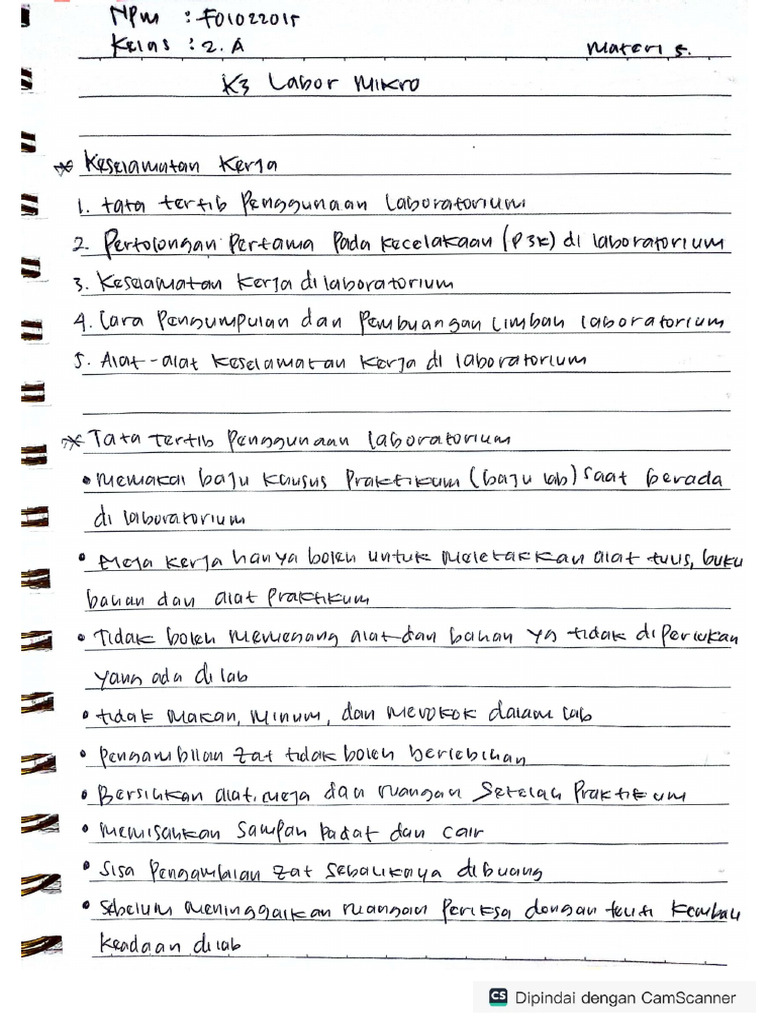 NPM : F01022015
Kelas : 2.A
Materi 5.
K3 Labor Mikro
* Keselamatan Kerja
1. tata tertib Penggunaan Laboratorium
2. Pertolongan Pertama Pada Kecelakaan (P3K) di laboratorium
3. Keselamatan Kerja di laboratorium
4. Cara Pengumpulan dan Pembuangan Limbah laboratorium
5. Alat-alat Keselamatan Kerja di laboratorium
* Tata tertib Penggunaan laboratorium
• Memakai baju khusus Praktikum (baju lab) saat berada
di laboratorium
• Meja Kerja hanya boleh untuk meletakkan alat tulis, buku
bahan dan alat Praktikum
• Tidak boleh memegang alat dan bahan yg tidak diperlukan
yang ada di lab
• tidak Makan, Minum, dan Merokok dalam lab
• Pengambilan zat tidak boleh berlebihan
• Bersihkan alat, meja dan ruangan Setelah Praktikum
• Memisahkan Sampah Padat dan cair
• Sisa Pengambilan zat Sebaliknya dibuang
• Sebelum meninggalkan ruangan Periksa dengan teliti Kembali
Keadaan di lab
CS Dipindai dengan CamScanner